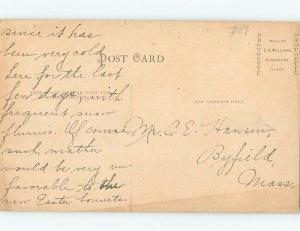 since it has
been very cold
here for the last
few days, with
frequent snow
flurries. Of course
such weather
would be very un-
favorable to the
new Easter bonnets.
#89
POST CARD
FOR ADDRESS ONLY
Mr. C. E. Hansen,
Byfield,
Mass.
PROVIDENCE